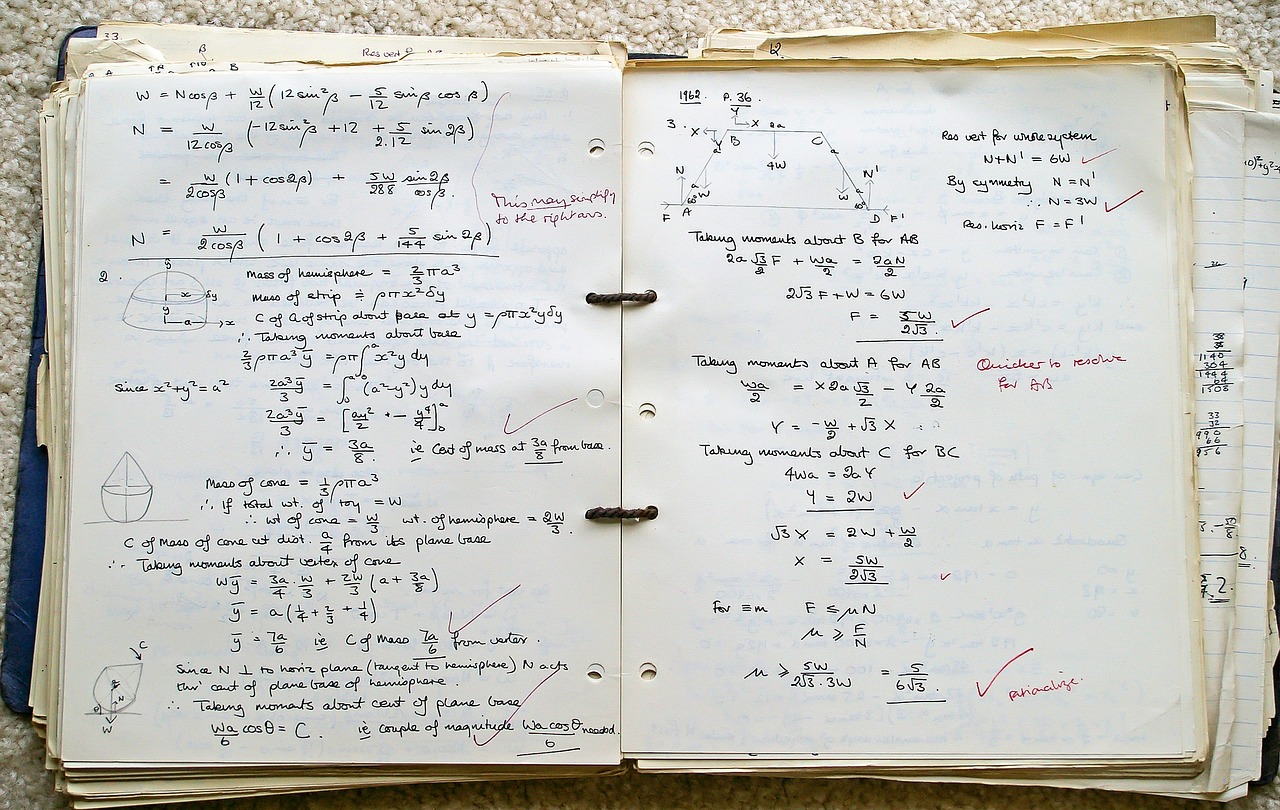 33.
β
Res vert
B
W = Ncosβ + W/12 (12 sin²β − 5/12 sinβ cosβ)
N = W/12cosβ (−12sin²β + 12 + 5/2.12 sin 2β)
= W/2cosβ (1 + cos2β) + 5W/288 sin2β/cosβ.
This may simplify
to the right ans.
N = W/2cosβ (1 + cos2β + 5/144 sin 2β)
2.
Mass of hemisphere = 2/3 πa³
Mass of strip ≑ ρπx²δy
C of G of strip about base at y = ρπx²yδy
∴ Taking moments about base
2/3 ρπa³ȳ = ρπ∫₀ᵃ x²y dy
Since x²+y²=a² 2a³ȳ/3 = ∫₀ᵃ (a²−y²)y dy
2a³ȳ/3 = [ay²/2 − y⁴/4]₀ᵃ
∴ ȳ = 3a/8 ie Cent of mass at 3a/8 from base.
Mass of cone = 1/3 ρπa³
∴ If total wt. of toy = W
∴ wt of cone = W/3 wt. of hemisphere = 2W/3.
C of Mass of cone at dist. a/4 from its plane base
∴ Taking moments about vertex of cone
Wȳ = 3a/4 . W/3 + 2W/3 (a + 3a/8)
ȳ = a(1/4 + 2/3 + 1/4)
ȳ = 7a/6 ie C of Mass 7a/6 from vertex.
C
Since N ⊥ to horiz plane (tangent to hemisphere) N acts
thro' cent of plane base of hemisphere.
N
θ
W
∴ Taking moments about cent of plane base
Wa/6 cosθ = C. ie couple of magnitude Wa cosθ/6 needed.
12.
1962. P. 36.
Y
X
2a
3. X B C
Y
a a
4W
N N'
a a
W W
60° 60°
F A D F'
Res vert for whole system
N+N' = 6W
By symmetry N = N'
∴ N = 3W
Res. horiz F = F'
Taking moments about B for AB
2a √3/2 F + Wa/2 = 2aN/2
2√3 F + W = 6W
F = 5W/2√3.
Taking moments about A for AB
Quicker to resolve
for AB
Wa/2 = X 2a √3/2 − Y 2a/2
Y = −W/2 + √3 X
Taking moments about C for BC
4Wa = 2aY
Y = 2W
√3 X = 2W + W/2
X = 5W/2√3
For ≡m F ≤ μN
μ ≥ F/N
μ ≥ 5W/2√3.3W = 5/6√3.
rationalize.
38
38
1140
304
1444
64
1508
33
32
990
66
956